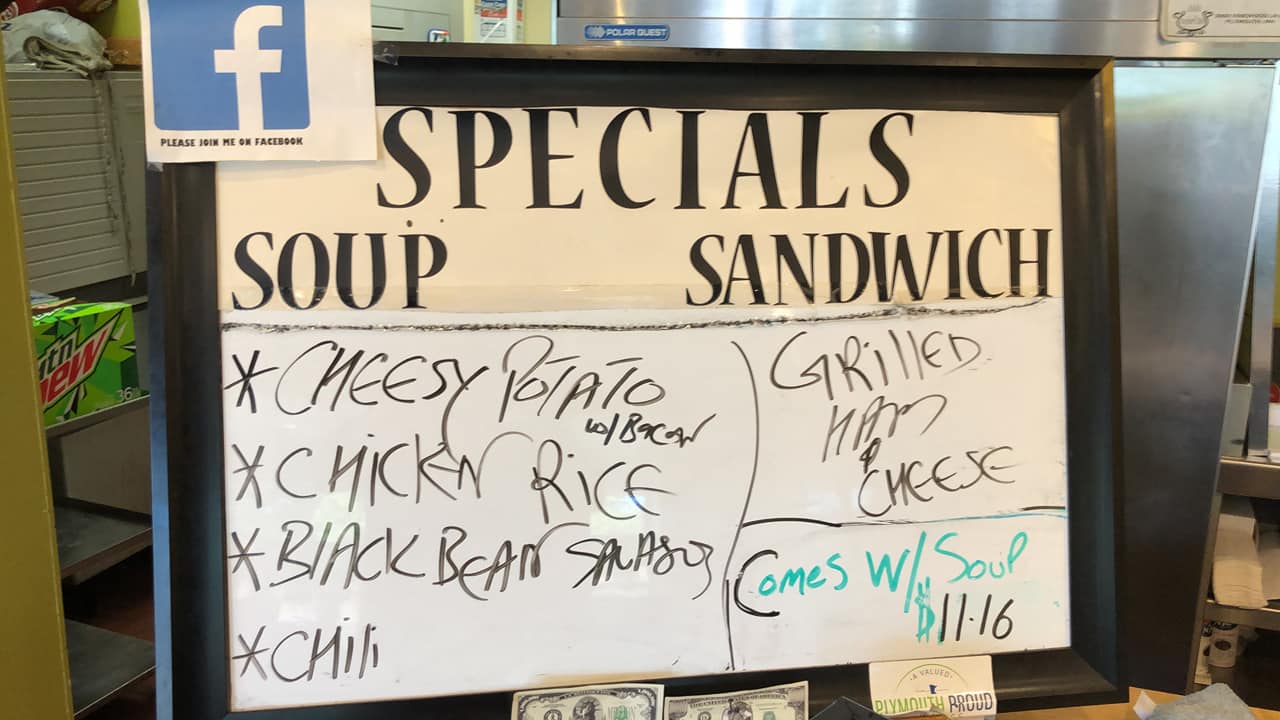 f
PLEASE JOIN ME ON FACEBOOK
POLAR QUEST
SPECIALS
SOUP
SANDWICH
*CHEESY POTATO
w/BACON
*CHICKEN RICE
*BLACK BEAN
*CHili
GRillED
HAM
&
CHEESE
COMES W/SOUP
$11.16
mtn
Dew
36
A VALUED
PLYMOUTH PROUD